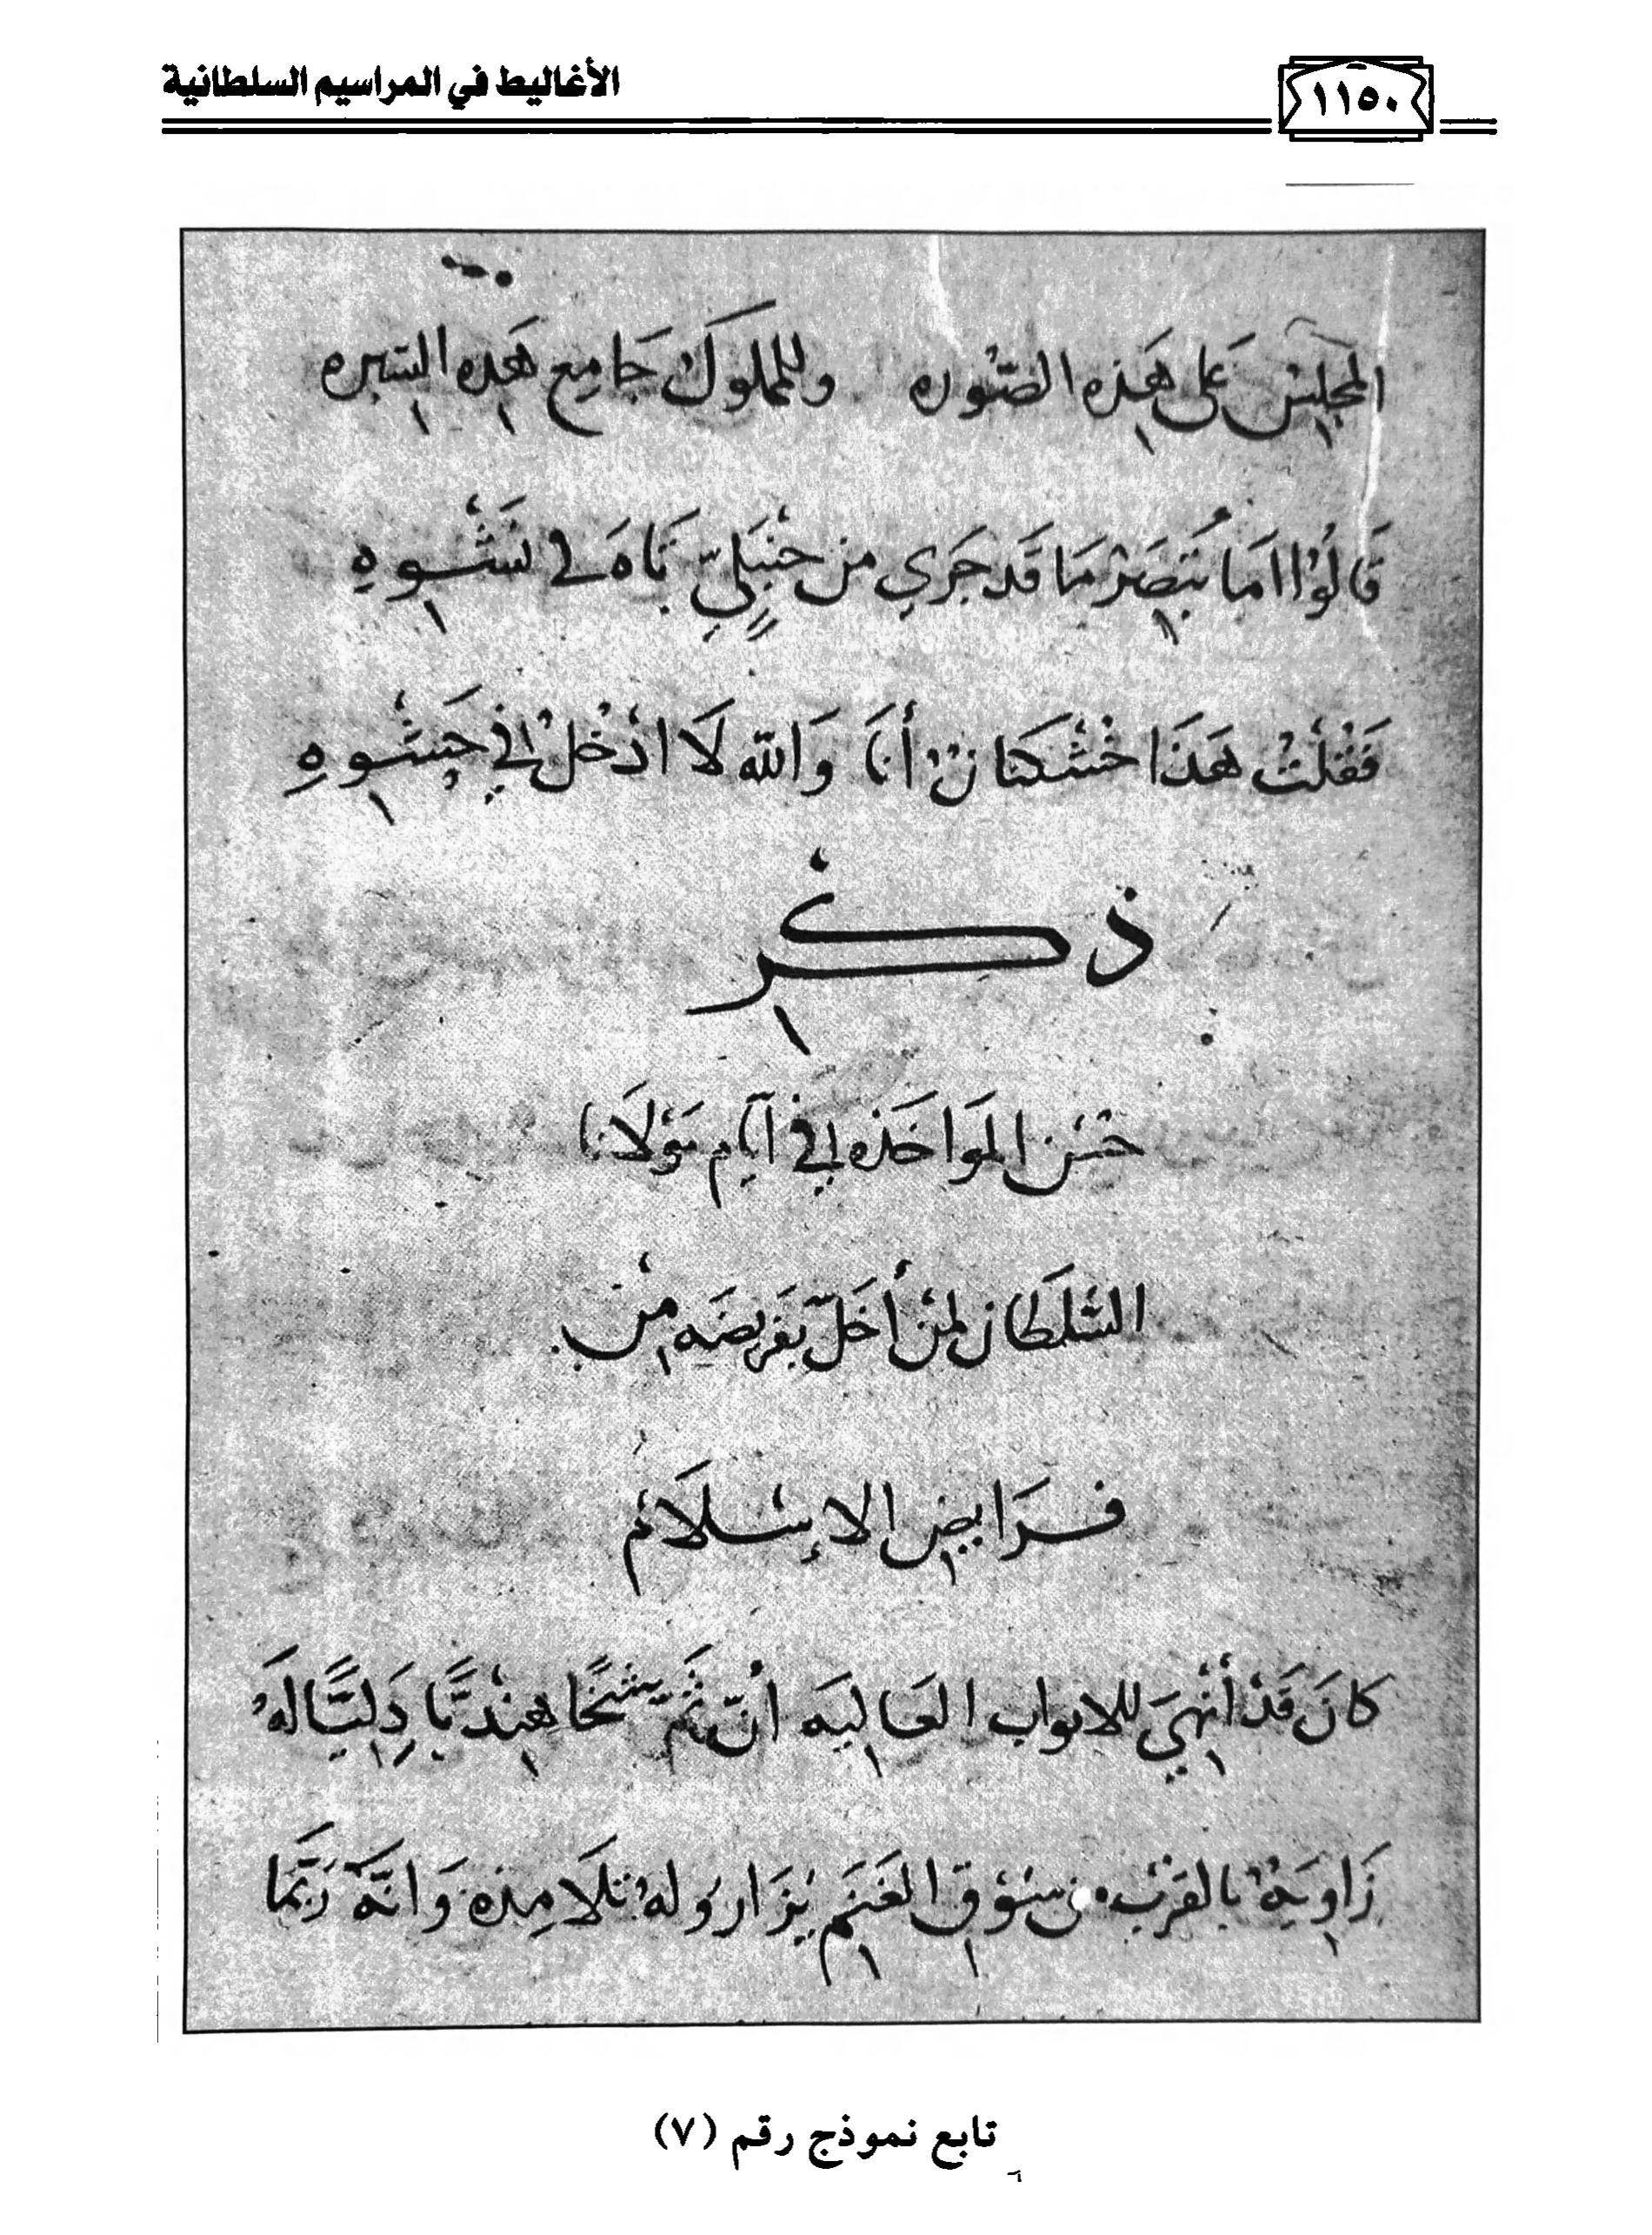 ١١٥٠ الأغاليط في المراسيم السلطانية
المجلِسْ عَلى هَذه الصّوره وللمملوك جَامِع هَذه السّيره
قَالوُا امَا تُبصَرْ مَا قَد جَرَي من حَنْبَليّ تَاهَ في نَشْوهِ
فقُلْتُ هَذَا خُشْكنَانْ أنَا وَالله لَا ادْخُلْ في حَشْوهِ
ذكْر
حُسْن المَواخَذه في آيّام مَوْلَانا
السُّلطَان لمنْ أخَلّ بفَريضَه منْ
فَرَايض الإسْلَامْ
كانَ قَدْ أُنْهِيَ للابواب العَاليَه أنّ ثَمّ شَيْخًا هِنْديًّا دِلّيًّا لَهُ
زَاوِيَهْ بالقرْبِ من سُوْق الغَنَم يُزَار وُلهُ تلَامِذه وَانَّهُ رُبَّمَا
تابع نموذج رقم (٧)